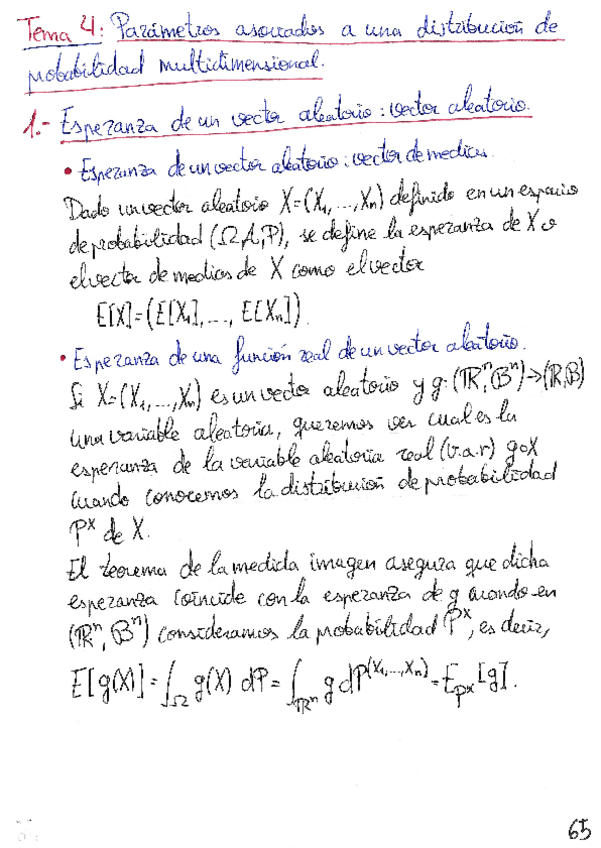 Tema 4: Parámetros asociados a una distribución de
probabilidad multidimensional.
1.- Esperanza de un vector aleatorio: vector aleatorio.
• Esperanza de un vector aleatorio: vector de medias.
Dado un vector aleatorio X=(X₁,...,Xₙ) definido en un espacio
de probabilidad (Ω,A,P), se define la esperanza de X o
el vector de medias de X como el vector
E[X]=(E[X₁],..., E[Xₙ]).
• Esperanza de una función real de un vector aleatorio.
Si X=(X₁,...,Xₙ) es un vector aleatorio y g:(ℝⁿ,Bⁿ)→(ℝ,B)
una variable aleatoria, queremos ver cual es la
esperanza de la variable aleatoria real (v.a.r) g∘X
cuando conocemos la distribución de probabilidad
Pˣ de X.
El teorema de la medida imagen asegura que dicha
esperanza coincide con la esperanza de g cuando en
(ℝⁿ,Bⁿ) consideramos la probabilidad Pˣ, es decir,
E[g(X)]=∫_Ω g(X) dP = ∫_ℝⁿ g dP^(X₁,...,Xₙ) = E_Pˣ[g].
65